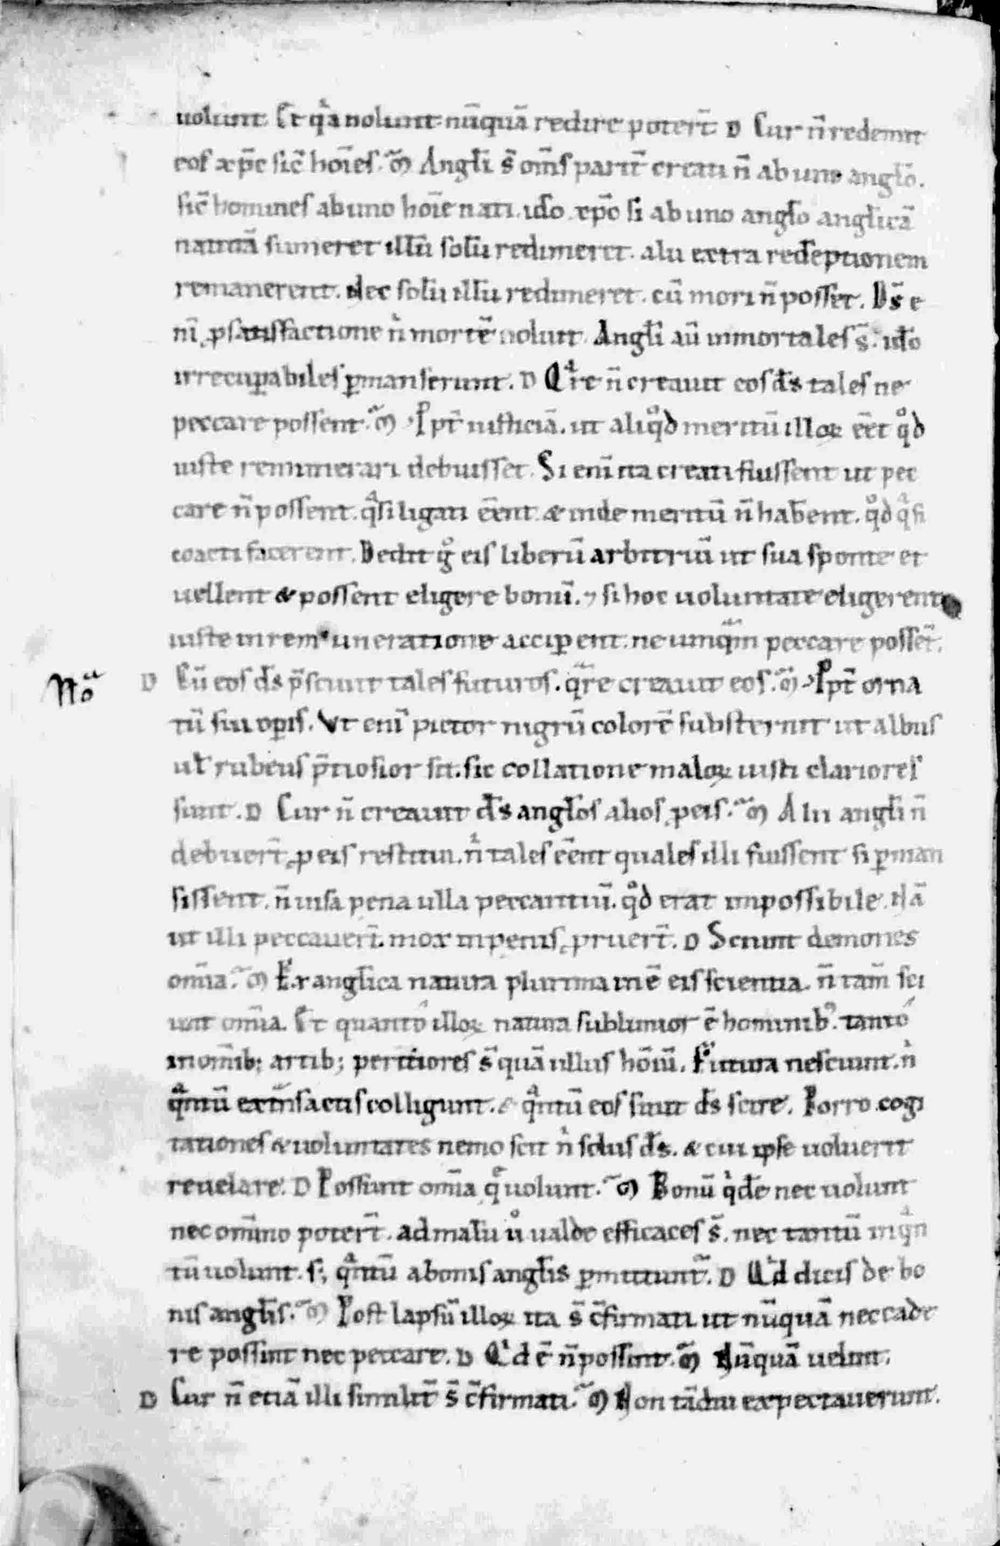 uolunt. Et q̾a nolunt nūquā redire poter̄t. D Cur n̄ redemit
eos xp̄c sic̄ hoīes. M̄ Angl̄i s̄ om̄s parit̄ creati n̄ ab uno angl̄o.
sic̄ homines ab uno hoīe nati. ido xp̄c si ab uno angl̄o anglicā
naturā sumeret illū solū redimeret. alii extra redēptionem
remanerent. Nec solū illū redimeret. cū mori n̄ posset. Ds̄ e
nī ꝓ satisfactione n̄ mortē uoluit. Angl̄i aū inmortales s̄. id̄o
irrecuꝑabiles ꝑmanserunt. D Qᷓre n̄ creauit eos d̄s tales ne
peccare possent. M̄ Ppt̄ iusticiā. ut aliqͦd meritū illoꝝ eēt qͦd
iuste remunerari debuisset. Si enī ita creati fuissent ut pec
care n̄ possent. qᷓsi ligati eēnt & inde meritū n̄ hab̄ent. qͦd qᷓsi
coacti facerent. Dedit gͦ eis liberū arbitriū ut sua sponte et
uellent & possent eligere bonū. ⁊ si hoc uoluntate eligerent
iuste in remuneratione acciꝑent. ne umqͣm peccare possēt.
Nōa D Cū eos d̄s p̄sciuit tales futuros. qᷓre creauit eos. M̄ Ppt̄ orna
tū sui oꝑis. Vt enī pictor nigrū colorē substernit ut albus
ul̄ rubeus p̄tiosior sit. sic collatione maloꝝ iusti clariores
sunt. D Cur n̄ creauit d̄s angl̄os alios ꝓ eis. M̄ Alii angl̄i n̄
debuer̄t ꝓ eis restitui. n̄ tales eēnt quales illi fuissent si ꝑman
sissent. n̄ uisa pena ulla peccantiū. qͦd erat impossibile. Nā
ut illi peccauer̄t. mox in penis ꝓruer̄t. D Sciunt demones
om̄ia. M̄ Ex angl̄ica natura plurima inē eis scientia. n̄ tam̄ sci
unt om̄ia. Et quanto illoꝝ natura sublimior ē hominib;. tanto
in om̄ib; artib; peritiores s̄ quā ullus hōiū. Futura nesciunt. n̄
qᷓntū ex t̄nsactis colligunt. & qᷓntū eos sinit d̄s scire. Porro cogi
tationes & uoluntates nemo scit n̄ solus d̄s. & cui ipse uoluerit
reuelare. D Possunt om̄ia q̄ uolunt. M̄ Bonū qͥde nec uolunt
nec om̄ino poter̄t. ad malū uͦ ualde efficaces s̄. nec tantū inqᷓn
tū uolunt. s; qᷓntū a bonis angl̄is ꝑmittunt̄. D Qͥd dicis de bo
nis angl̄is. M̄ Post lapsū illoꝝ ita s̄ c̄firmati ut nūquā nec cade
re possint nec peccare. D Qͥd ē n̄ possint. M̄ Nūquā uelint.
D Cur n̄ etiā illi similit̄ s̄ c̄firmati. M̄ Non tādiu expectauerunt.